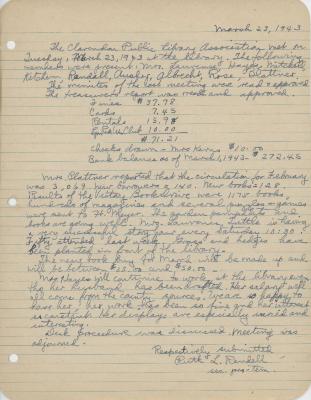 March 23, 1943
The Clarendon Public Library Association met on
Tuesday, March 23, 1943 at the library. The following
members were present: Mrs. Lawrence, Hayes, Mitchell
Ketchem, Randall, Albrecht, Rose, Blattner,
The minutes of the last meeting were read & approved.
The treasurer's report was read and approved.
Fines $37.78
Cards 7.45
Rentals 13.98
Club 10.00
$71.21
Checks drawn - Mrs. $10.00
Bank balance as of March 1, 1943 - $272.45
Mrs. Blattner reported that the circulation for February
was 3,069. New borrowers - 140. New books - 128.
Results of the Victory Book drive were 1175 books,
hundreds of magazines and several puzzles & games
were sent to Ft. Myer. The garden pamphlets and
books are going well. Mrs. Lawrence Mattle is having
a very successful story hour every Saturday 10:30.
Fifty attended last week. and hedges have
been planted in front of the library.
The new book buy for March will be made up and
will be between $25.00 and $50.00
Mrs. Hayes will continue to work at the library even
tho her husband has been drafted. Her salary will
all come from the county sources. We are so happy to
have her; her work has been so fine and her interest
is Her displays are especially varied and
interesting.
Desk procedure was discussed. Meeting was
adjourned.
Respectively submitted
Ruth L. Randall
sec. pro-tem.